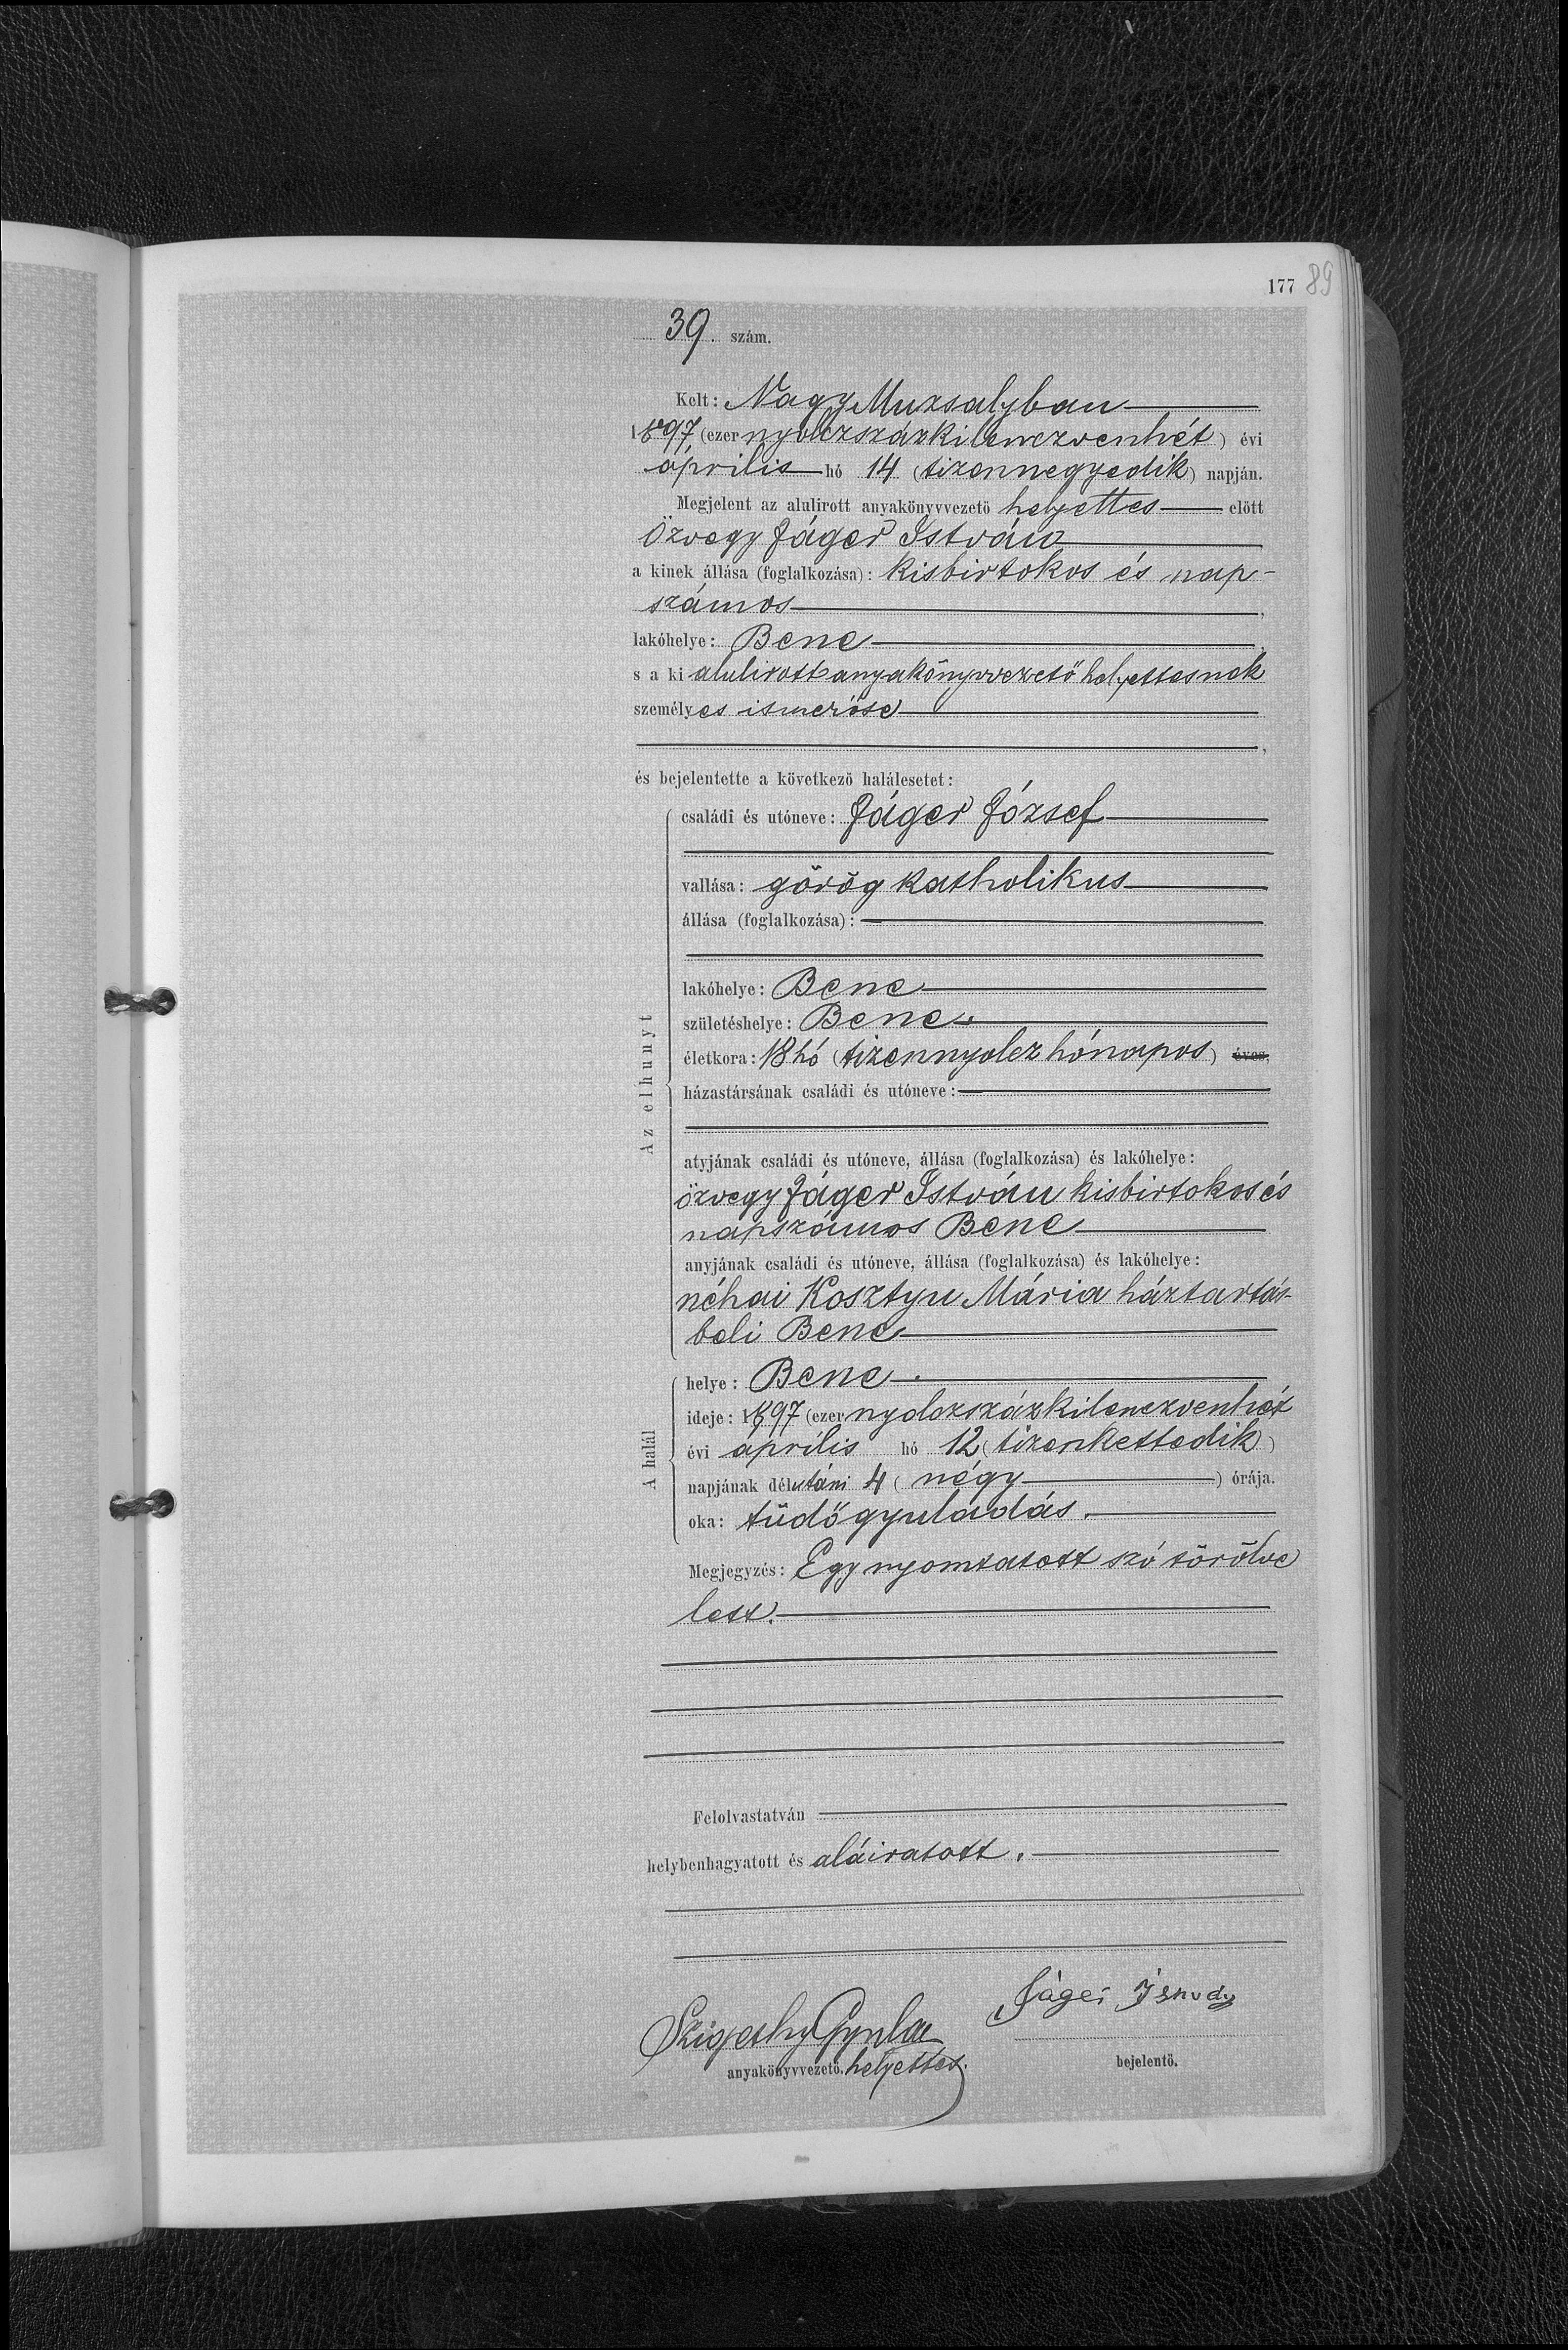 177 89
39. szám.
Kelt: Nagy Muzsalyban
1897 (ezer nyolczszázkilenczvenhét) évi
április hó 14 (tizennegyedik) napján.
Megjelent az alulirott anyakönyvvezető helyettes előtt
özvegy Jáger István
a kinek állása (foglalkozása): kisbirtokos és nap-
számos,
lakóhelye: Bene
s a ki alulirott anyakönyvvezető helyettesnek
személyes ismerőse
,
és bejelentette a következő halálesetet:
Az elhunyt
családi és utóneve: Jáger József
vallása: görög katholikus
állása (foglalkozása):
lakóhelye: Bene
születéshelye: Bene.
életkora: 18 hó (tizennyolcz hónapos) éves,
házastársának családi és utóneve:
atyjának családi és utóneve, állása (foglalkozása) és lakóhelye:
özvegy Jáger István kisbirtokos és
napszámos Bene
anyjának családi és utóneve, állása (foglalkozása) és lakóhelye:
néhai Kosztyu Mária háztartás-
beli Bene
A halál
helye: Bene.
ideje: 1897 (ezer nyolczszázkilenczvenhét
évi április hó 12 (tizenkettedik)
napjának délutáni 4 (négy) órája.
oka: tüdőgyuladás.
Megjegyzés: Egy nyomtatott szó törölve
lett.
Felolvastatván
helybenhagyatott és aláiratott.
Jáger
Szigethy Gyula
anyakönyvvezető. helyettes.
bejelentő.